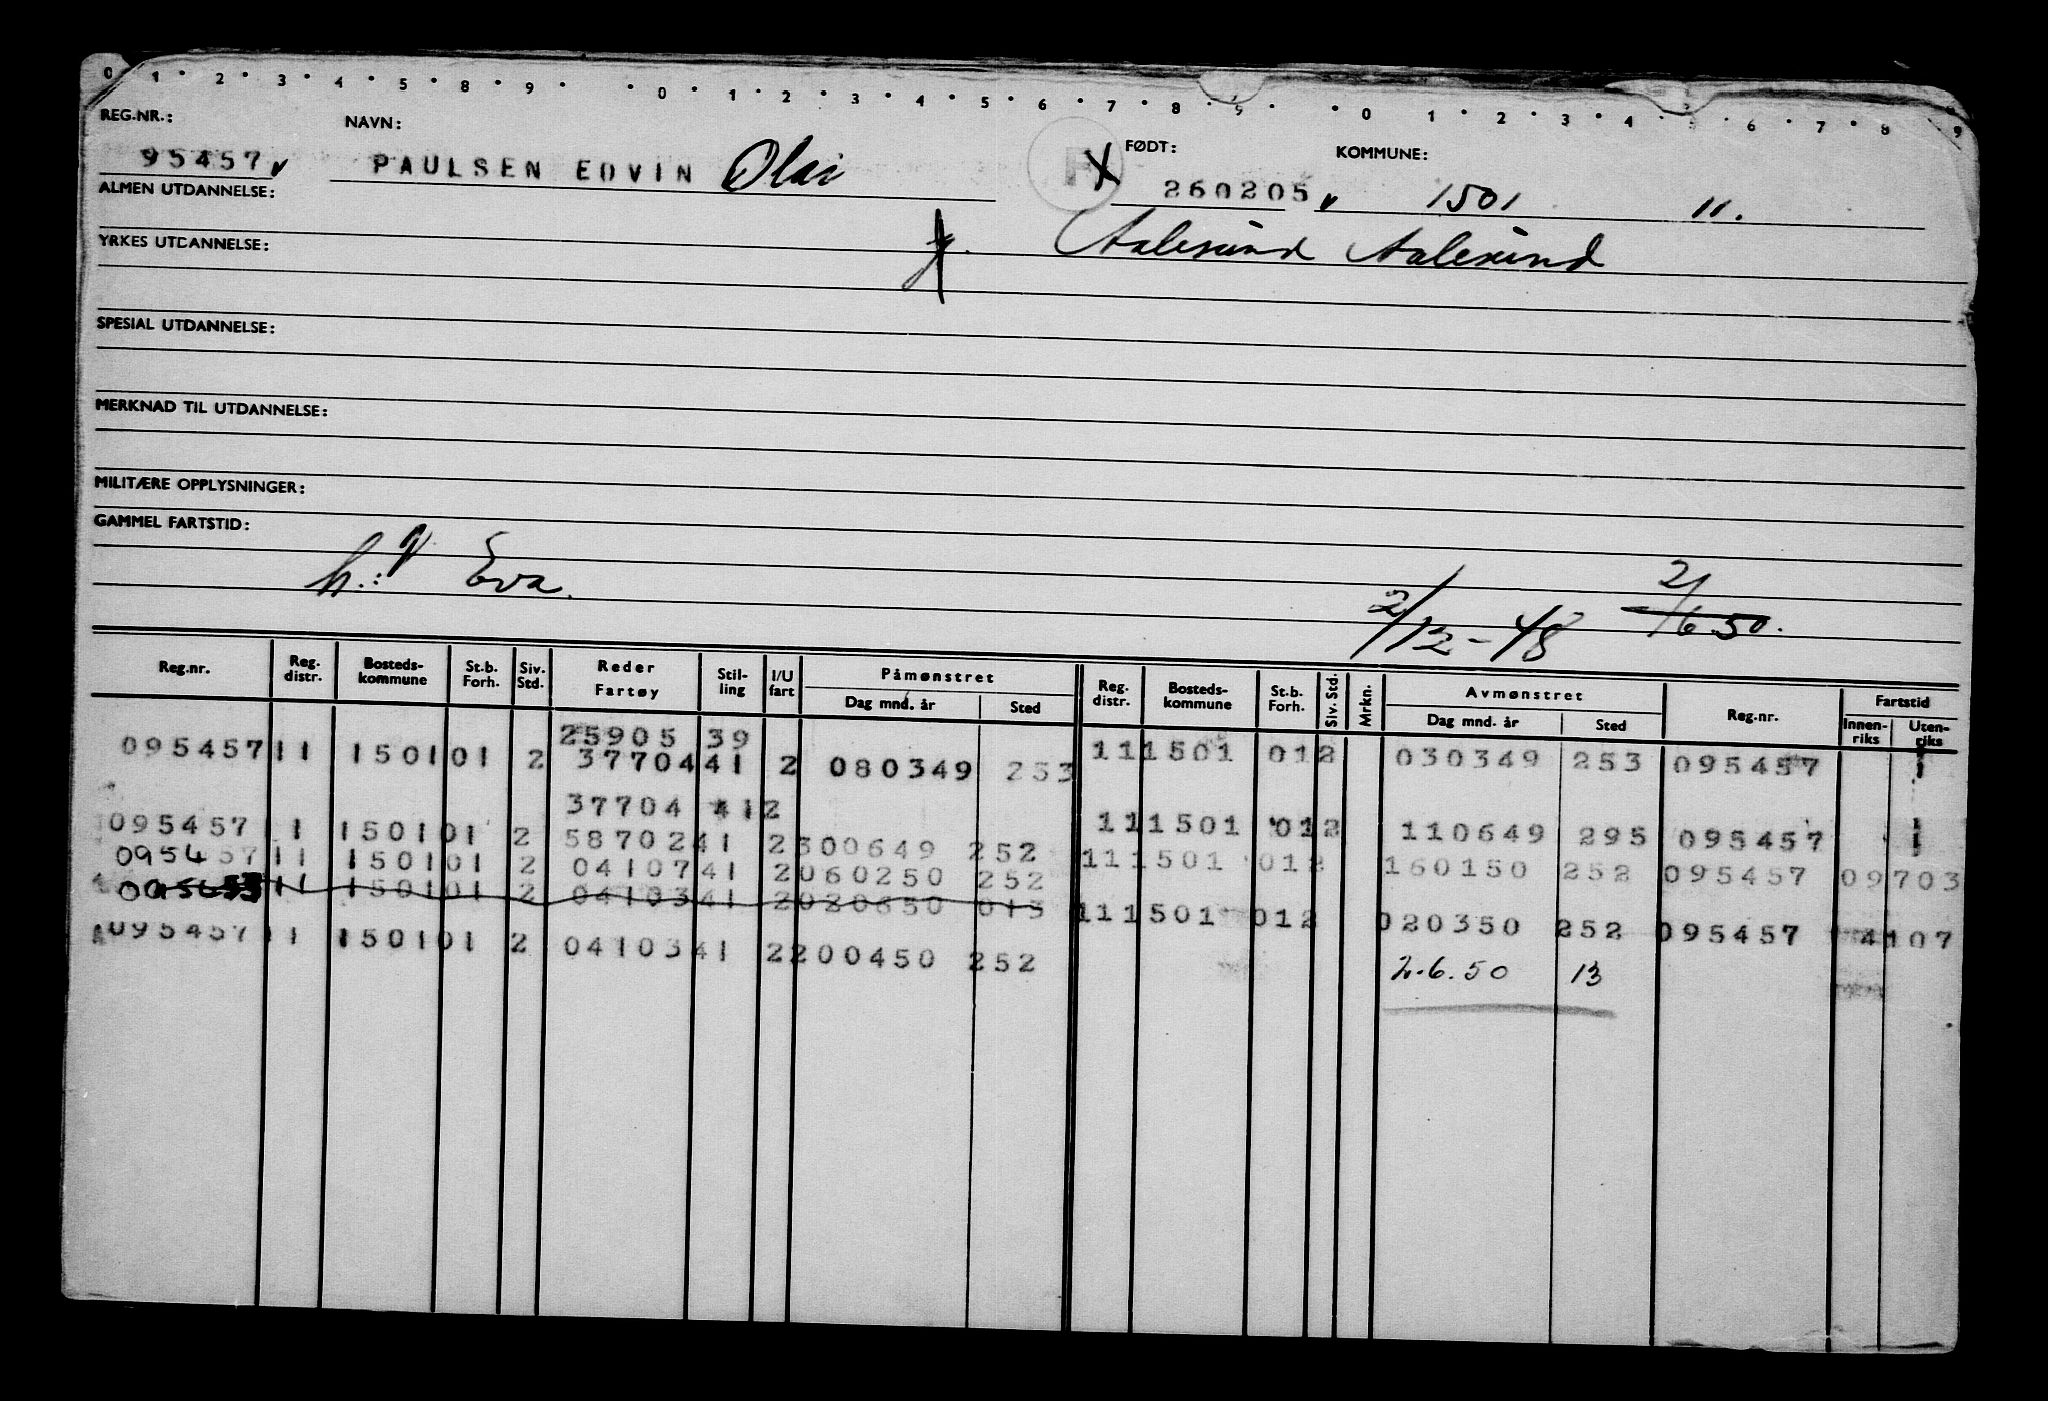 0 1 2 3 4 5 6 7 8 9 0 1 2 3 4 5 6 7 8 9 0 1 2 3 4 5 6 7 8 9
REG.NR.: NAVN: FØDT: KOMMUNE:
95457 PAULSEN EDVIN Olai X 260205 1501 11.
ALMEN UTDANNELSE:
g. Aalesund Aalesund
YRKES UTDANNELSE:
SPESIAL UTDANNELSE:
MERKNAD TIL UTDANNELSE:
MILITÆRE OPPLYSNINGER:
GAMMEL FARTSTID:
h.: Eva. 2/12-48 2/6.50.
Reg.nr. Reg. distr. Bosteds-kommune St.b. Forh. Siv. Std. Reder Fartøy Stil-ling I/U fart Påmønstret Dag mnd. år Sted Reg. distr. Bosteds-kommune St.b. Forh. Siv. Std. Mrkn. Avmønstret Dag mnd. år Sted Reg.nr. Fartstid Innen-riks Uten-riks
25905 39
095457 11 1501 01 2 37704 41 2 080349 253 11 1501 01 2 030349 253 095457 1
37704 41 2
095457 11 1501 01 2 58702 41 2 300649 252 11 1501 01 2 110649 295 095457 1
095457 11 1501 01 2 04107 41 2 060250 252 11 1501 01 2 160150 252 095457 09703
11 1501 01 2 04103 41 2 020650 013 11 1501 01 2 020350 252 095457 4107
095457 11 1501 01 2 04103 41 2 200450 252 2.6.50 13